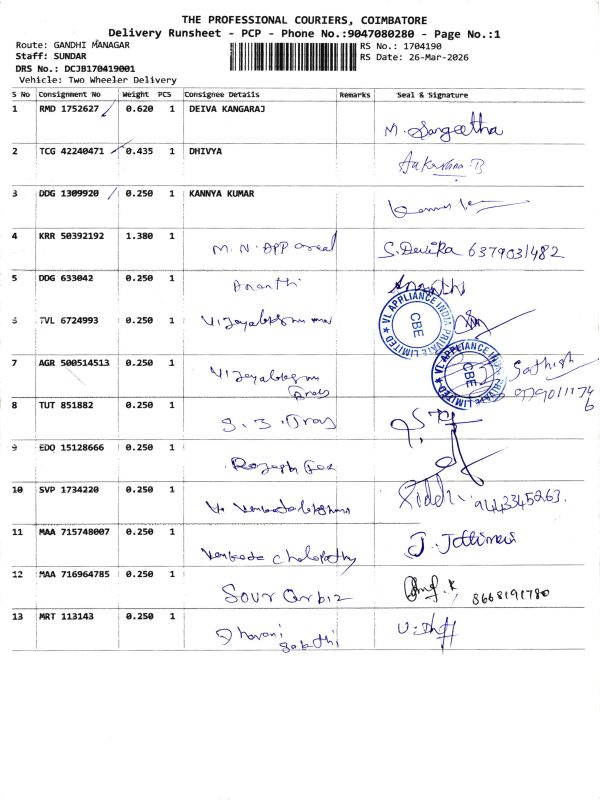 THE PROFESSIONAL COURIERS, COIMBATORE
Delivery Runsheet - PCP - Phone No.:9047080280 - Page No.:1
Route: GANDHI MANAGAR
RS No.: 1704190
Staff: SUNDAR
RS Date: 26-Mar-2026
DRS No.: DCJB170419001
Vehicle: Two Wheeler Delivery
S No Consignment No Weight PCS Consignee Details Remarks Seal & Signature
1 RMD 1752627 0.620 1 DEIVA KANGARAJ M. Sangeetha
2 TCG 42240471 0.435 1 DHIVYA
3 DDG 1309920 0.250 1 KANNYA KUMAR
4 KRR 50392192 1.380 1 M.N. APP S. Devika 6379031482
5 DDG 633042 0.250 1 Ananthi Ananthi
VL APPLIANCE INDIA PRIVATE LIMITED CBE
6 TVL 6724993 0.250 1
VL APPLIANCE INDIA PRIVATE LIMITED CBE
7 AGR 500514513 0.250 1 Sathish
8 TUT 851882 0.250 1
9 EDO 15128666 0.250 1
10 SVP 1734220 0.250 1 Siddhi
11 MAA 715748007 0.250 1 J. Jothimani
12 MAA 716964785 0.250 1 Sour Orbiz 8668191780
13 MRT 113143 0.250 1 Dharani Sakthi